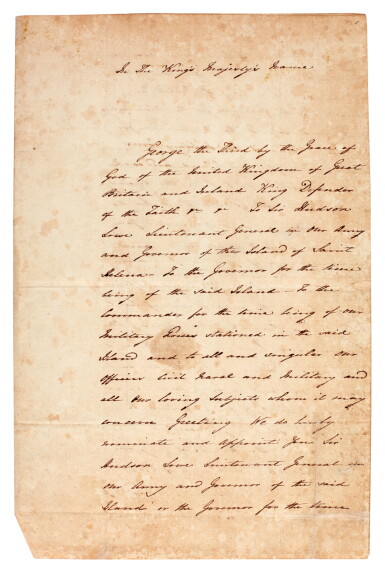 In The King's Majesty's Name
George the Third by the Grace of
God of the United Kingdom of Great
Britain and Ireland King Defender
of the Faith &c &c To Sir Hudson
Lowe Lieutenant General in our Army
and Governor of the Island of Saint
Helena – To the Governor for the time
being of the said Island – To the
Commander for the time being of our
Military Forces stationed in the said
Island and to all and singular our
Officers Civil Naval and Military and
all Our loving Subjects whom it may
concern Greeting We do hereby
nominate and appoint You Sir
Hudson Lowe Lieutenant General in
our Army and Governor of the said
Island or the Governor for the time